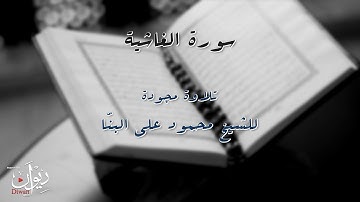 سورة الغاشية
تلاوة مجودة
للشيخ محمود على البنّا
ديوان
Diwan